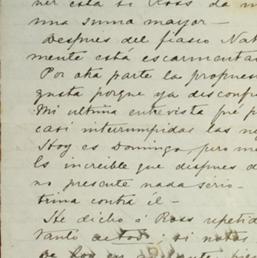 ner esta si Ross da m
una suma mayor –
Despues del fiasco Nat
mente está escarmenta
Por otra parte la propues
gusta porque ya desconfi
Mi ultima entrevista qe p
casi interrumpidas las n
Hoy es Domingo, pero m
Es increible que despues d
no presente nada serio
tima contra el –
He dicho á Ross repetid
tanto si notas
de Loy en